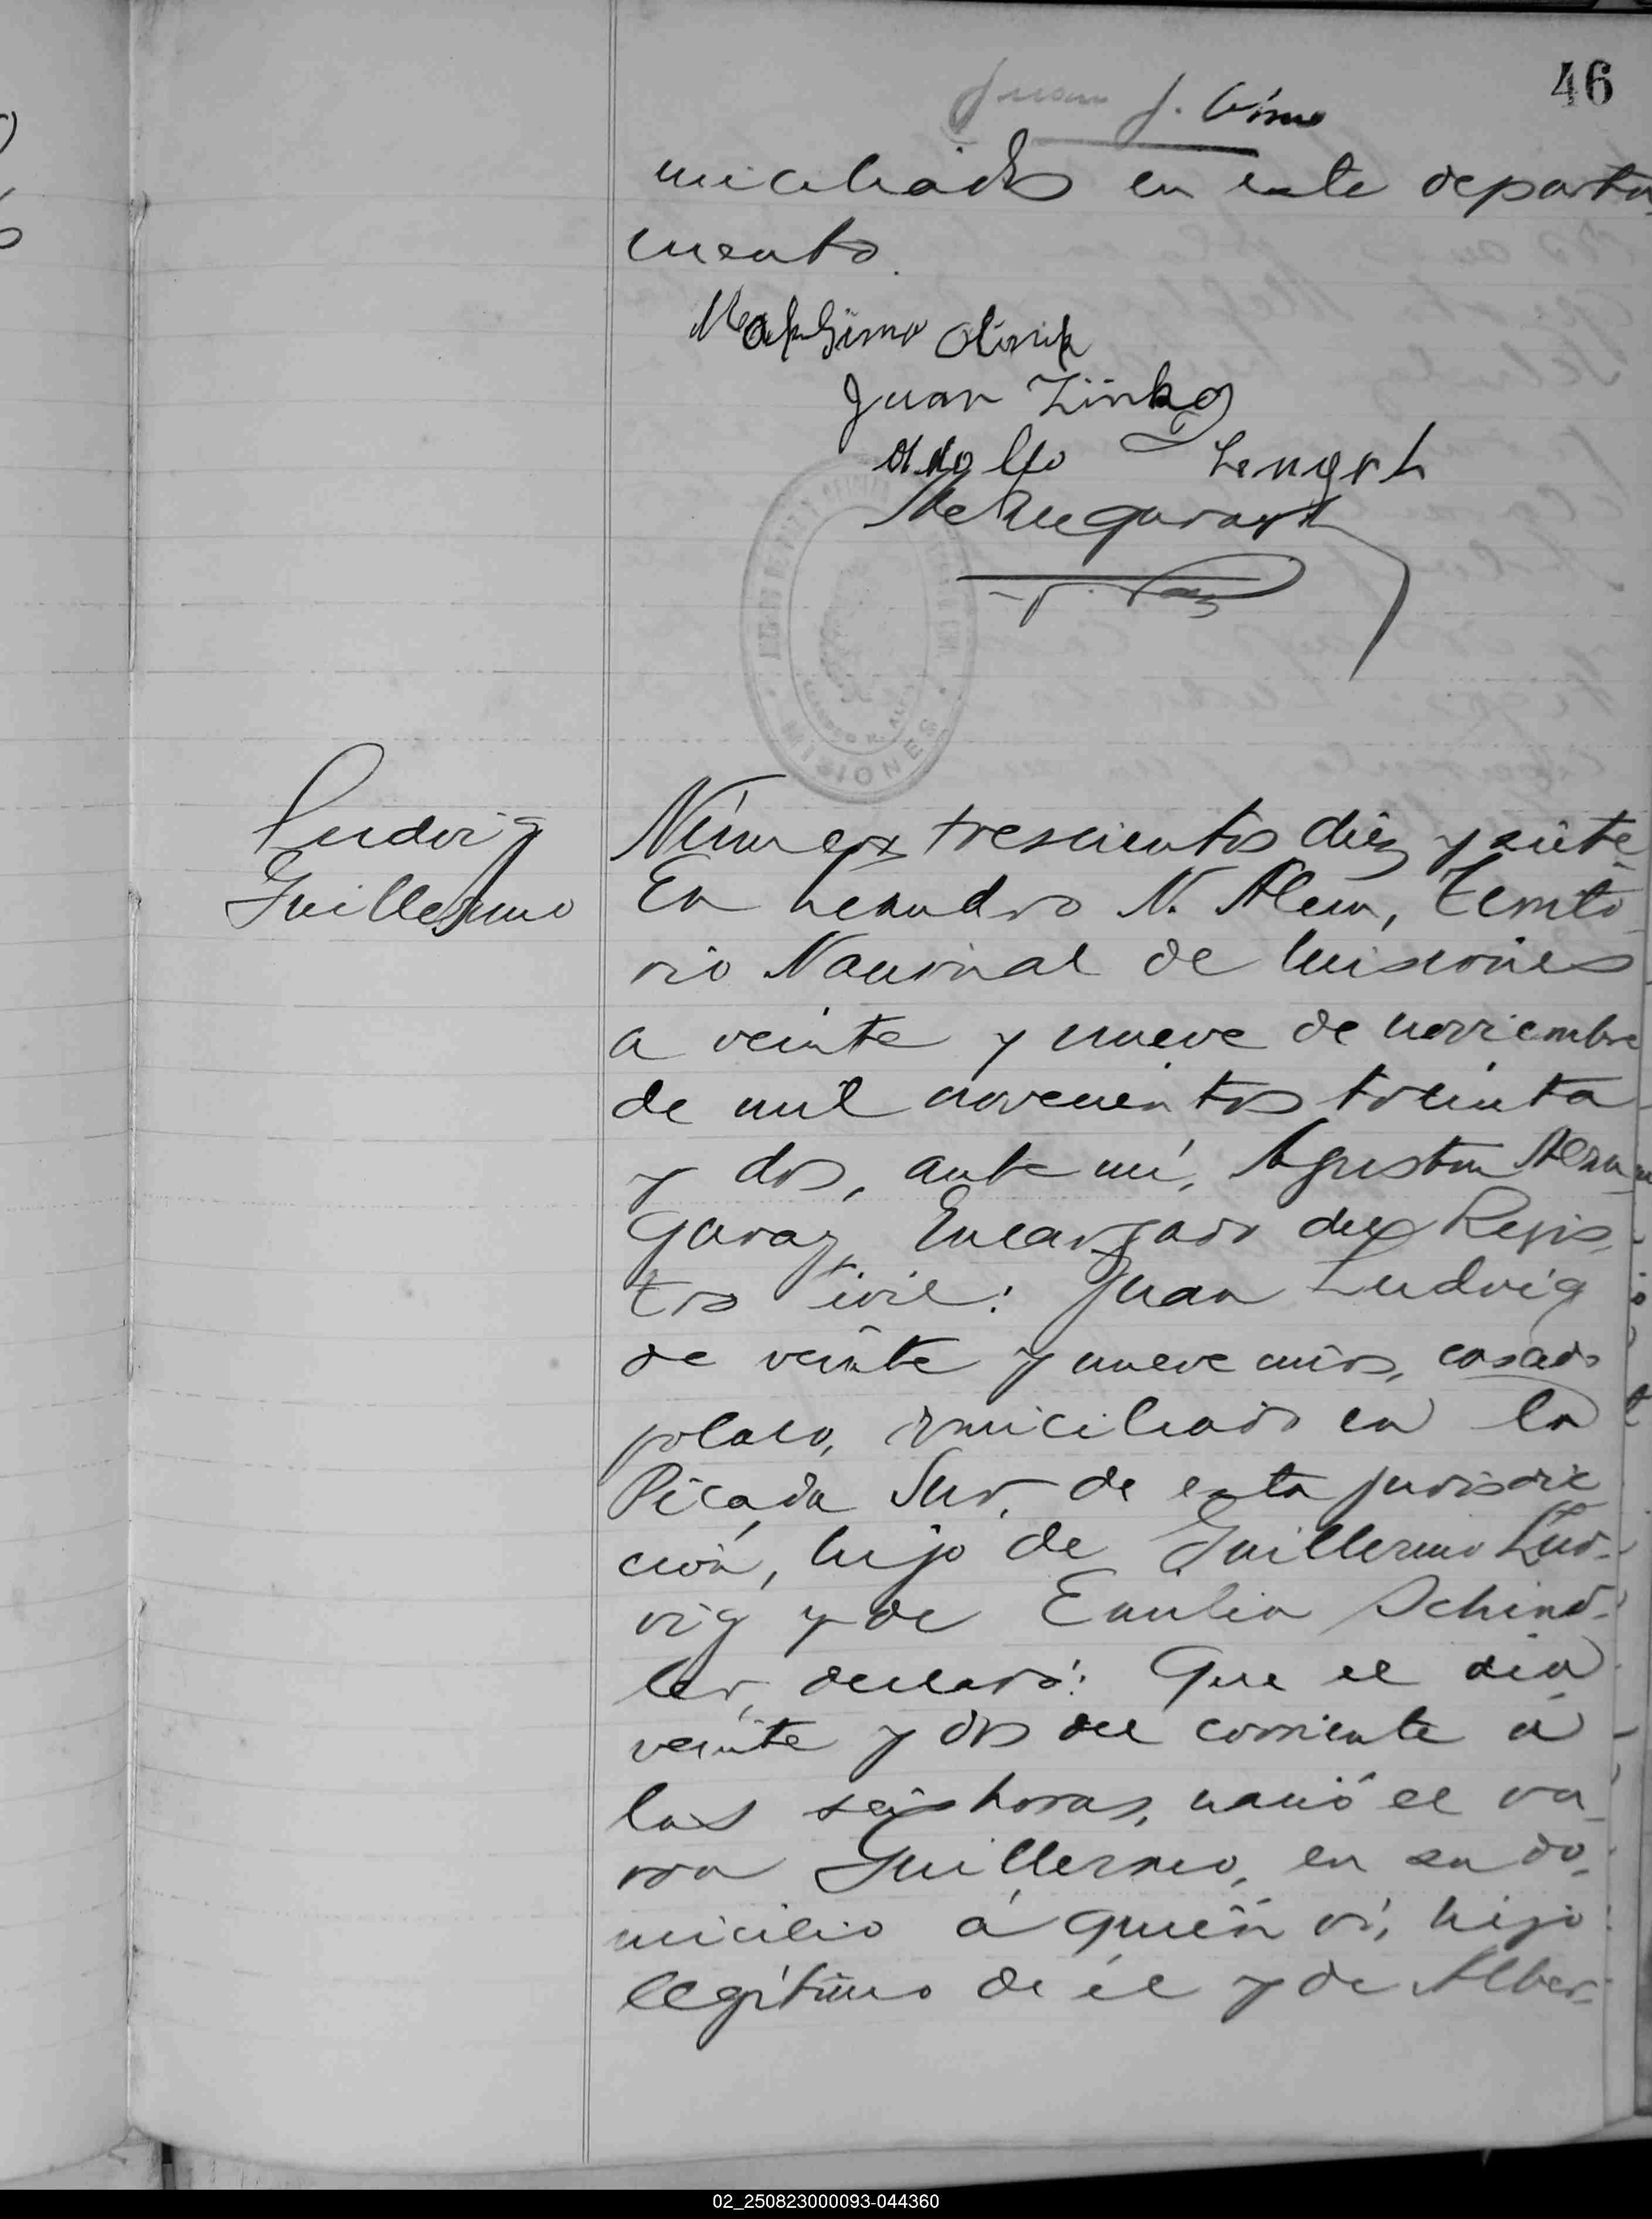 46
Juan J.
miciliados en este departa
mento.
Juan Zinko
Adolfo Lengert
MISIONES
Ludvig
Guillermo
Número trescientos diez y siete
En Leandro N. Alem, Territo
rio Nacional de Misiones
a veinte y nueve de noviembre
de mil novecientos treinta
y dos, ante mí, Agustin Aram
garay, Encargado del Regis
tro Civil: Juan Ludvig
de veinte y nueve años, casado
polaco, domiciliado en la
Picada Sur, de esta jurisdic
ción, hijo de Guillermo Lud-
vig y de Emilia Schind-
ler, declaró: Que el día
veinte y dos del corriente á
las seis horas, nació el va
ron Guillermo, en su do-
micilio á quién ví, hijo
legítimo de él y de Alber-
02_250823000093-044360